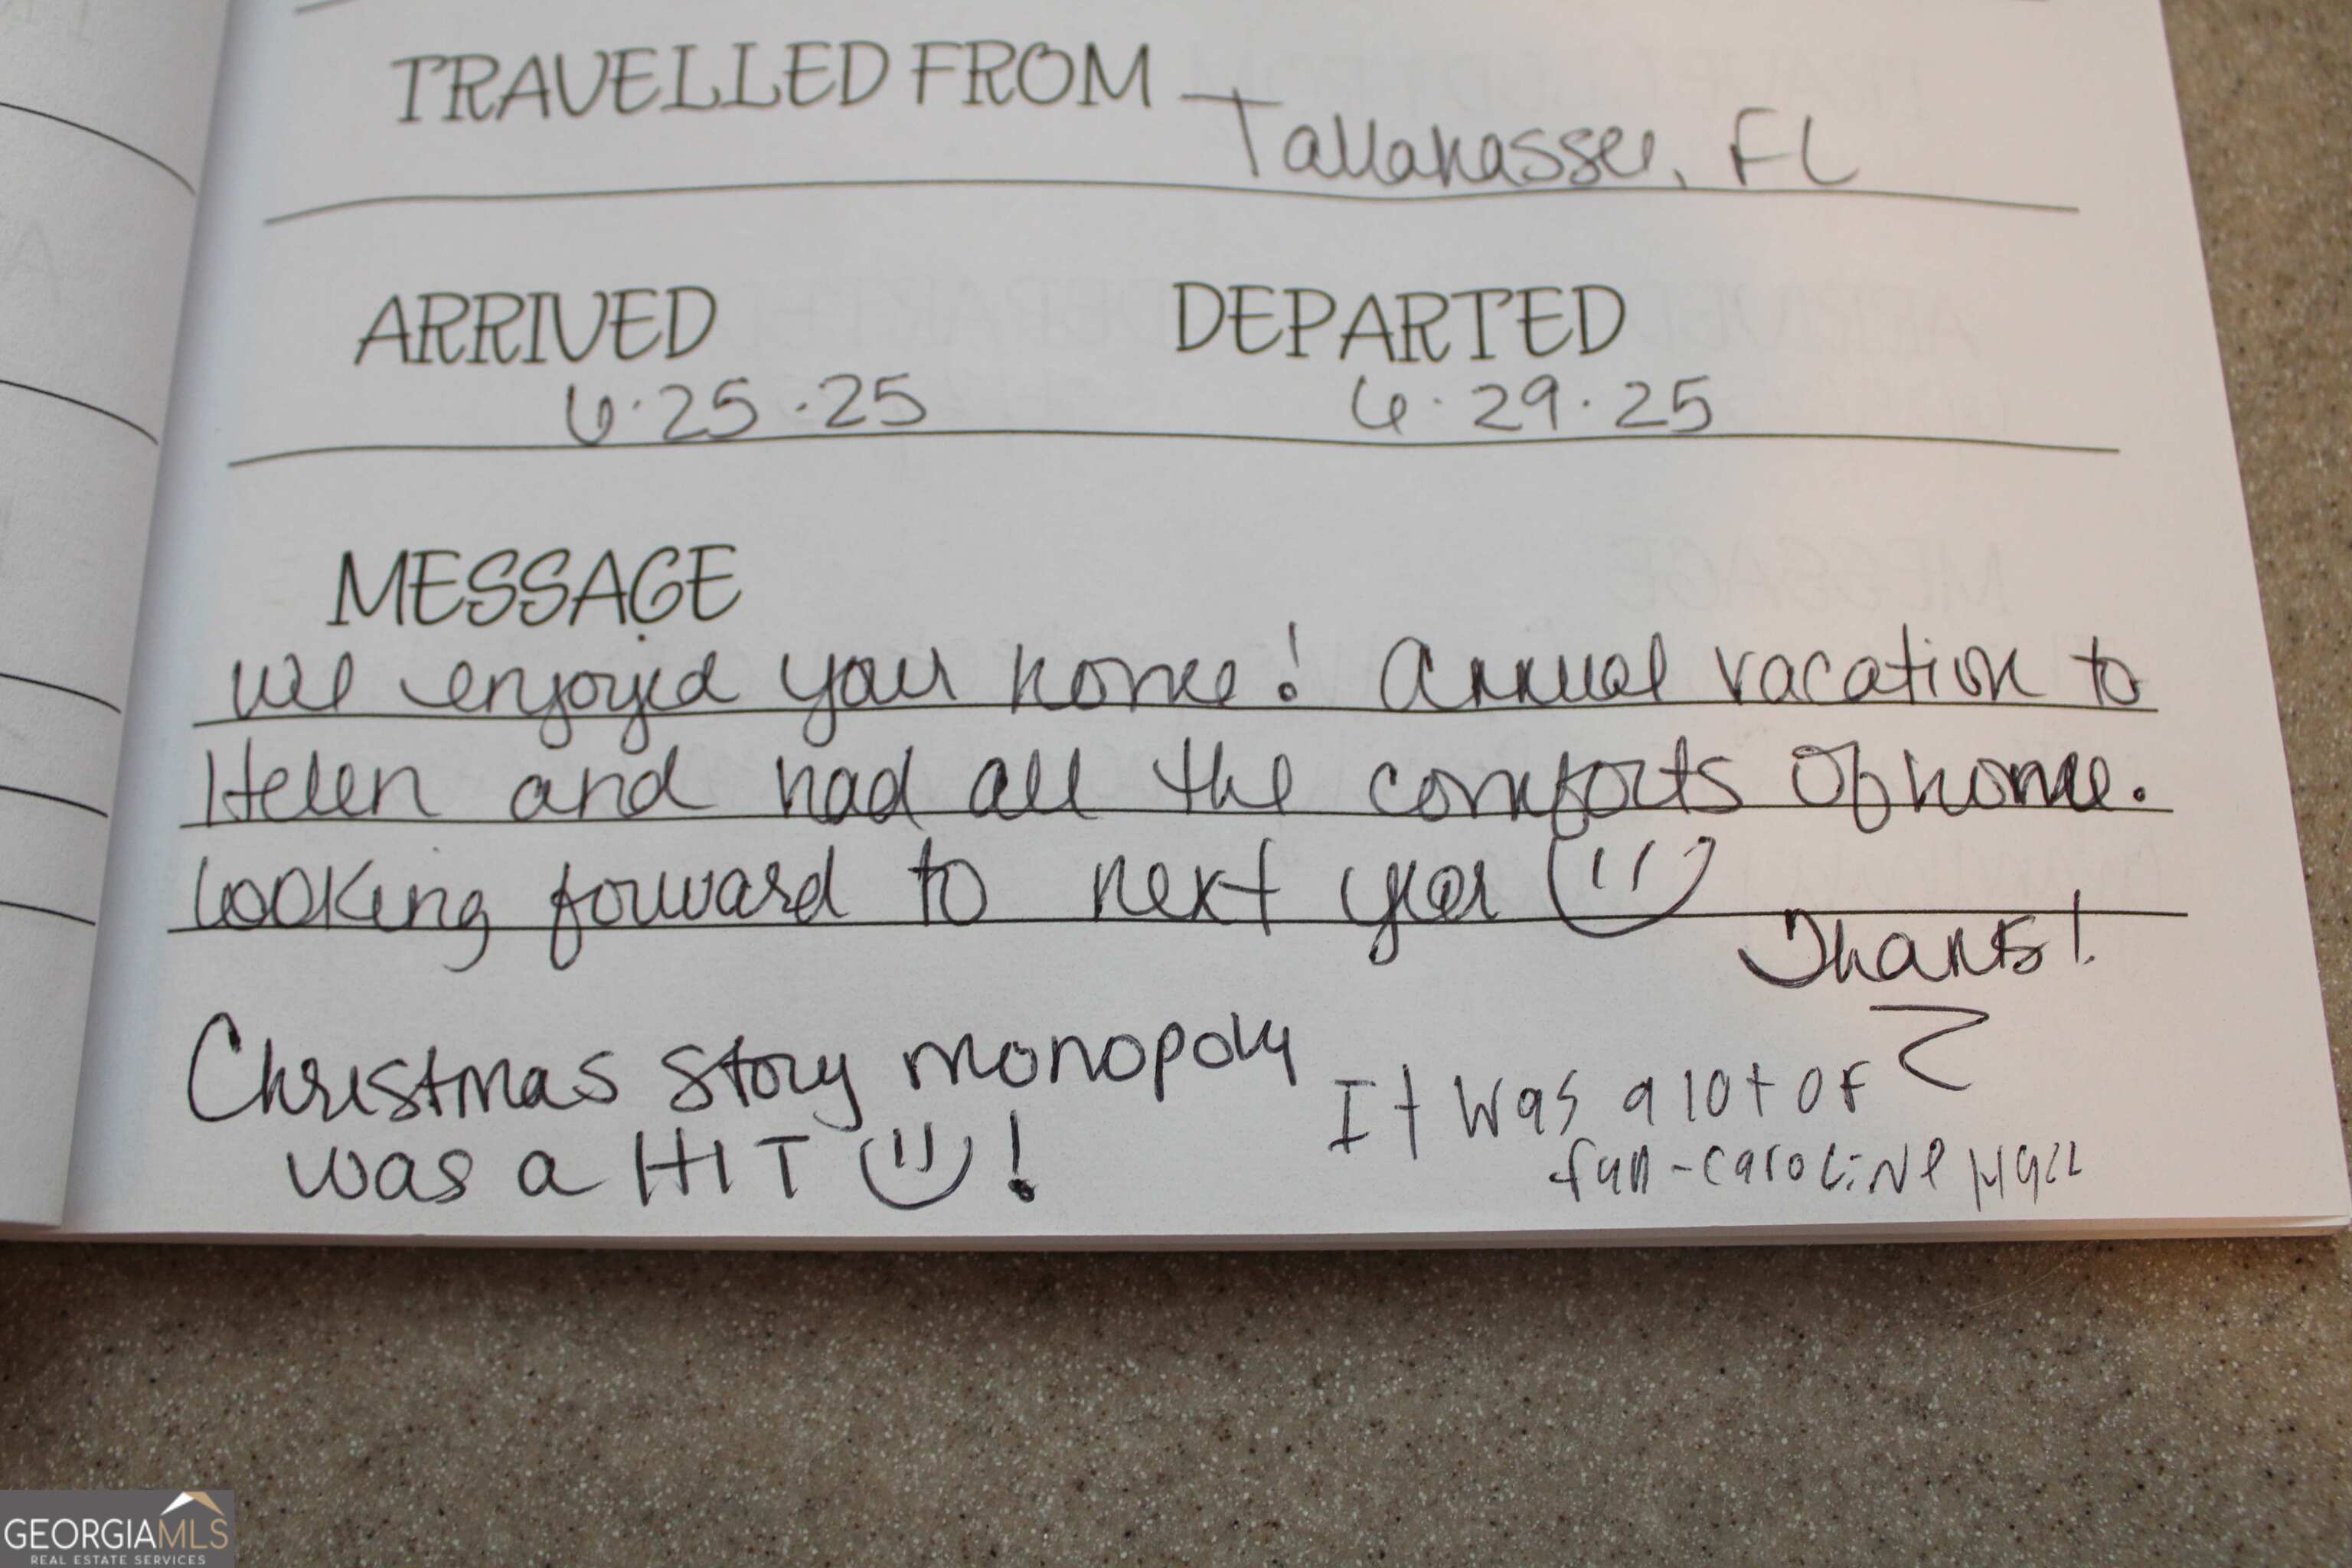 TRAVELLED FROM Tallahassee, FL
ARRIVED DEPARTED
6.25.25 6.29.25
MESSAGE
We enjoyed your home! Annual vacation to
Helen and had all the comforts of home.
Looking forward to next year
Thanks!
Christmas story monopoly
was a HIT !
It was a lot of
fun - caroline Hall
GEORGIAMLS
REAL ESTATE SERVICES